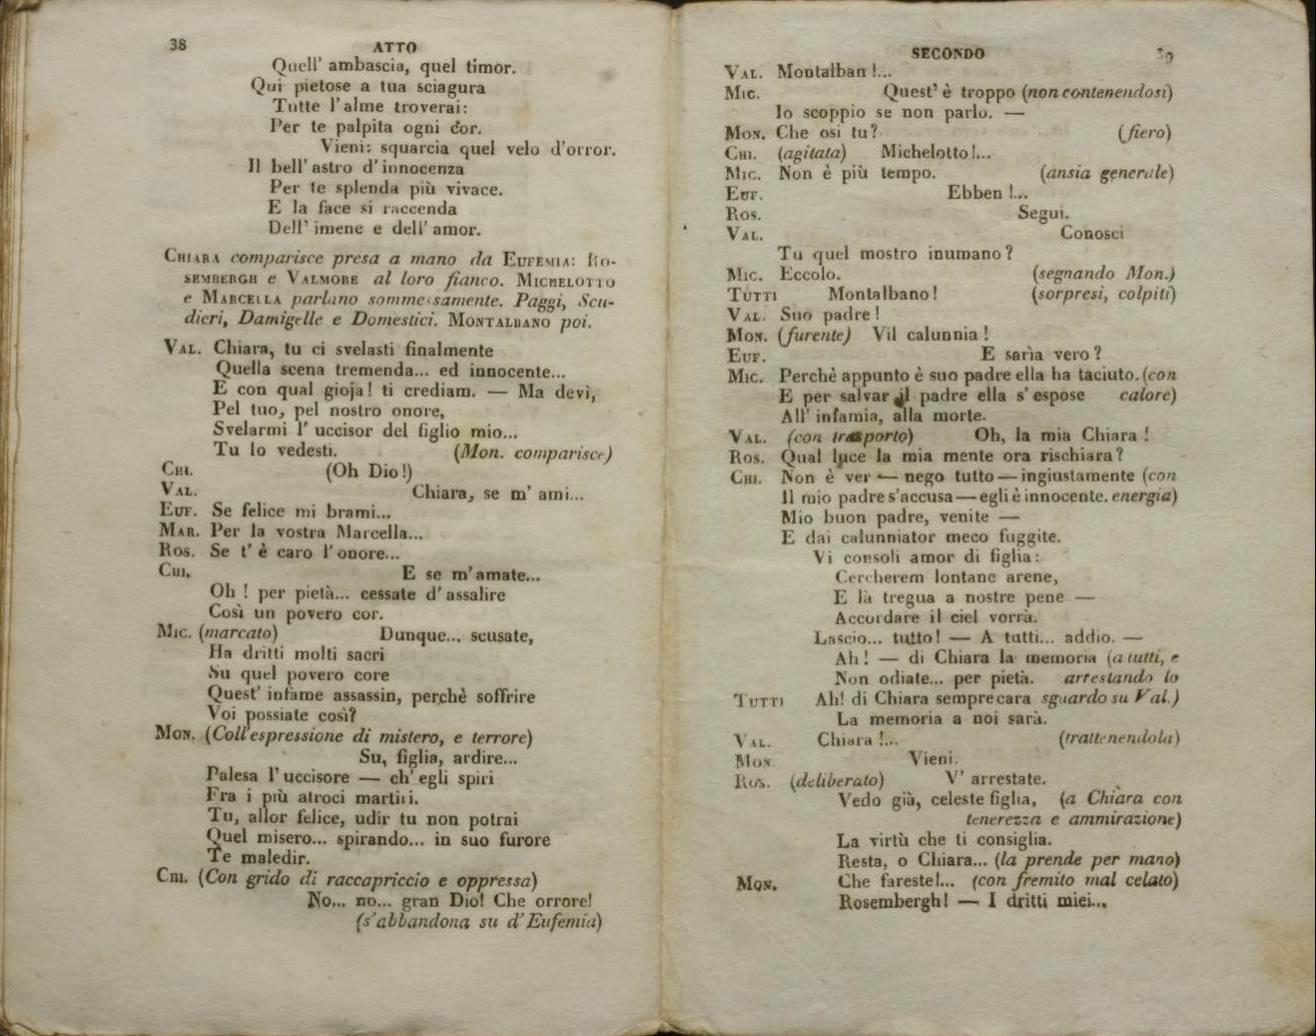 38 ATTO
Quell' ambascia, quel timor.
Qui pietose a tua sciagura
Tutte l'alme troverai:
Per te palpita ogni cor.
Vieni: squarcia quel velo d'orror.
Il bell' astro d'innocenza
Per te splenda più vivace.
E la face si raccenda
Dell' imene e dell' amor.
CHIARA comparisce presa a mano da EUFEMIA: RO-
SEMBERGH e VALMORE al loro fianco. MICHELOTTO
e MARCELLA parlano sommessamente. Paggi, Scu-
dieri, Damigelle e Domestici. MONTALBANO poi.
VAL. Chiara, tu ci svelasti finalmente
Quella scena tremenda... ed innocente...
E con qual gioja! ti crediam. — Ma devi,
Pel tuo, pel nostro onore,
Svelarmi l' uccisor del figlio mio...
Tu lo vedesti. (Mon. comparisce)
CHI. (Oh Dio!)
VAL. Chiara, se m' ami...
EUF. Se felice mi brami...
MAR. Per la vostra Marcella...
ROS. Se t' è caro l'onore...
CHI. E se m'amate...
Oh ! per pietà... cessate d'assalire
Così un povero cor.
MIC. (marcato) Dunque... scusate,
Ha dritti molti sacri
Su quel povero core
Quest' infame assassin, perchè soffrire
Voi possiate così?
MON. (Coll'espressione di mistero, e terrore)
Su, figlia, ardire...
Palesa l' uccisore — ch' egli spiri
Fra i più atroci martiri.
Tu, allor felice, udir tu non potrai
Quel misero... spirando... in suo furore
Te maledir.
CHI. (Con grido di raccapriccio e oppressa)
No... no... gran Dio! Che orrore!
(s'abbandona su d'Eufemia)
SECONDO 39
VAL. Montalban !...
MIC. Quest' è troppo (non contenendosi)
Io scoppio se non parlo. —
MON. Che osi tu? (fiero)
CHI. (agitata) Michelotto!...
MIC. Non è più tempo. (ansia generale)
EUF. Ebben !...
ROS. Segui.
VAL. Conosci
Tu quel mostro inumano?
MIC. Eccolo. (segnando Mon.)
TUTTI Montalbano! (sorpresi, colpiti)
VAL. Suo padre!
MON. (furente) Vil calunnia !
EUF. E sarìa vero?
MIC. Perchè appunto è suo padre ella ha taciuto. (con
E per salvar il padre ella s'espose calore)
All' infamia, alla morte.
VAL. (con trasporto) Oh, la mia Chiara !
ROS. Qual luce la mia mente ora rischiara?
CHI. Non è ver — nego tutto — ingiustamente (con
Il mio padre s'accusa — egli è innocente. energia)
Mio buon padre, venite —
E dai calunniator meco fuggite.
Vi consoli amor di figlia:
Cercherem lontane arene,
E là tregua a nostre pene —
Accordare il ciel vorrà.
Lascio... tutto! — A tutti... addio. —
Ah! — di Chiara la memoria (a tutti, e
Non odiate... per pietà. arrestando lo
TUTTI Ah! di Chiara sempre cara sguardo su Val.)
La memoria a noi sarà.
VAL. Chiara !... (trattenendola)
MON. Vieni.
ROS. (deliberato) V' arrestate.
Vedo già, celeste figlia, (a Chiara con
tenerezza e ammirazione)
La virtù che ti consiglia.
Resta, o Chiara... (la prende per mano)
MON. Che fareste!... (con fremito mal celato)
Rosembergh! — I dritti miei...